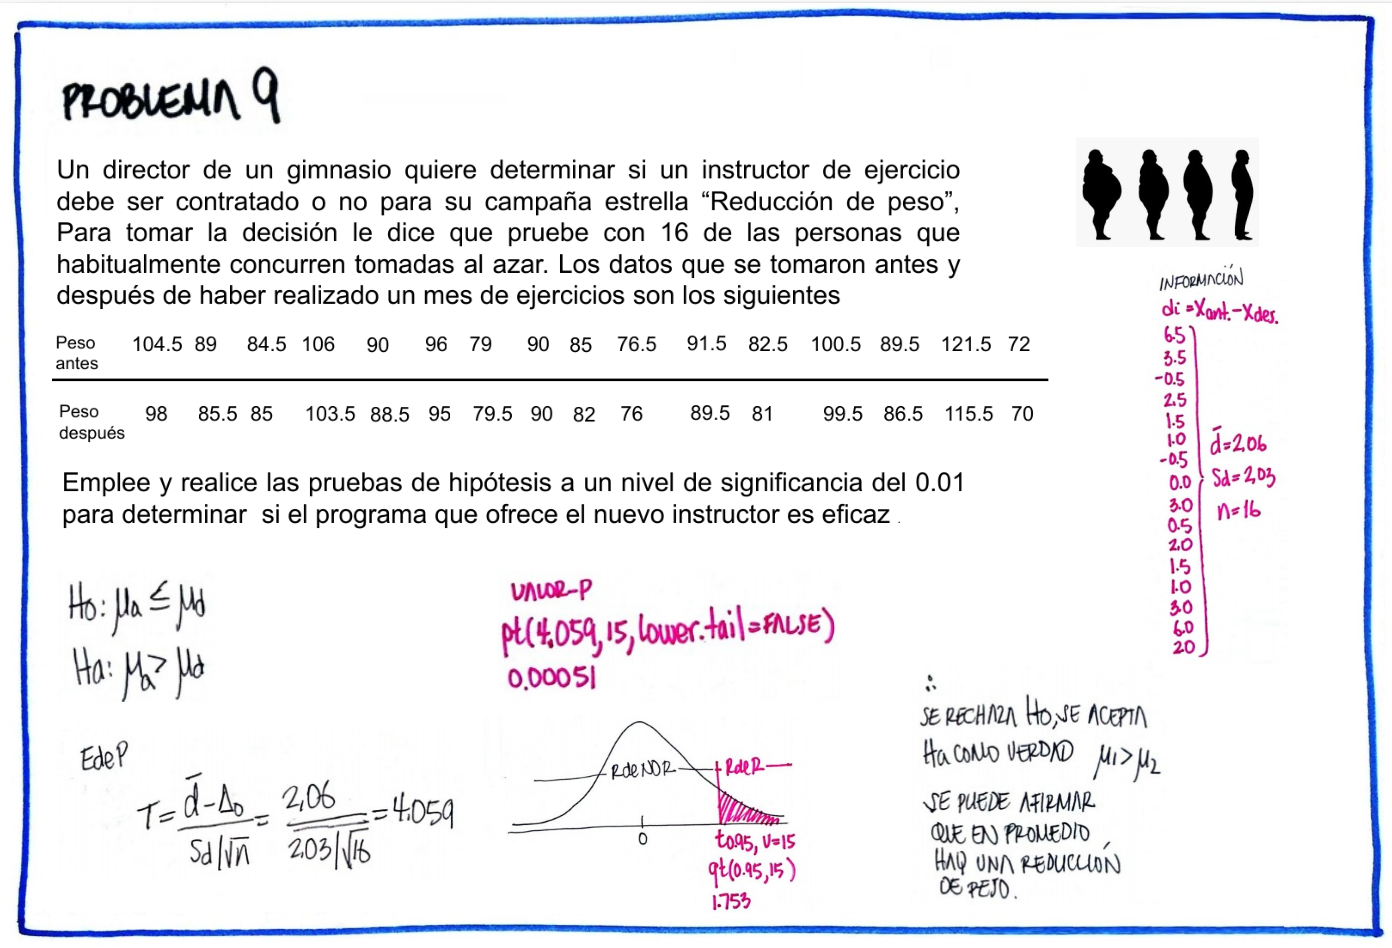 PROBLEMA 9
Un director de un gimnasio quiere determinar si un instructor de ejercicio
debe ser contratado o no para su campaña estrella “Reducción de peso”,
Para tomar la decisión le dice que pruebe con 16 de las personas que
habitualmente concurren tomadas al azar. Los datos que se tomaron antes y
después de haber realizado un mes de ejercicios son los siguientes
Peso antes 104.5 89 84.5 106 90 96 79 90 85 76.5 91.5 82.5 100.5 89.5 121.5 72
Peso después 98 85.5 85 103.5 88.5 95 79.5 90 82 76 89.5 81 99.5 86.5 115.5 70
Emplee y realice las pruebas de hipótesis a un nivel de significancia del 0.01
para determinar si el programa que ofrece el nuevo instructor es eficaz .
INFORMACIÓN
di = Xant. - Xdes.
6.5
3.5
-0.5
2.5
1.5
1.0
-0.5
0.0
3.0
0.5
2.0
1.5
1.0
3.0
6.0
2.0
d̄=2,06
Sd=2,03
n=16
Ho: μa ≤ μd
Ha: μa > μd
EdeP
T = (d̄ - Δ0)/(Sd/√n) = 2,06/(2.03/√16) = 4.059
VALOR-P
pt(4.059, 15, lower.tail=FALSE)
0.00051
RdeNOR
RdeR
0
t0.95, V=15
qt(0.95, 15)
1.753
∴
SE RECHAZA Ho, SE ACEPTA
Ha COMO VERDAD μ1 > μ2
SE PUEDE AFIRMAR
QUE EN PROMEDIO,
HAY UNA REDUCCIÓN
DE PESO.